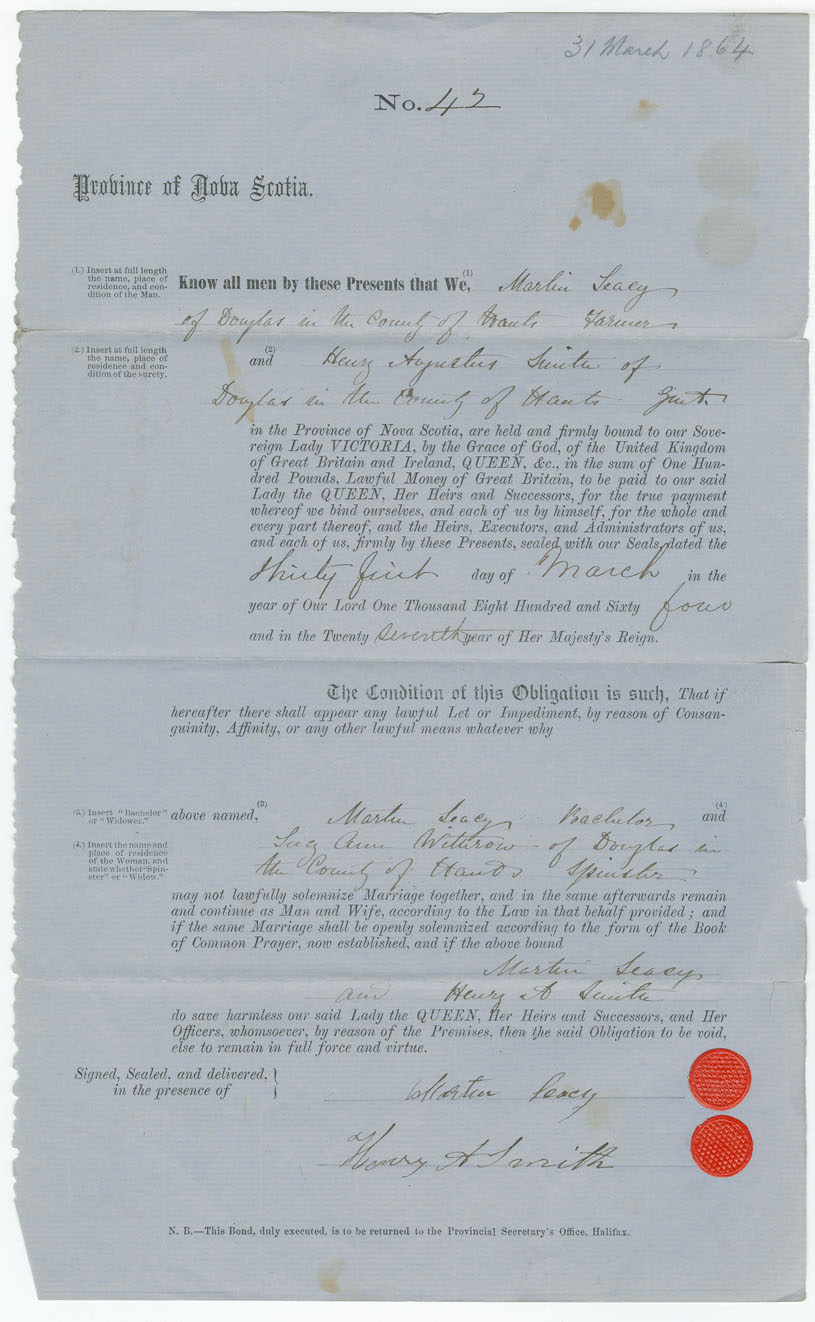 31 March 1864
No. 42
Province of Nova Scotia.
(1.) Insert at full length the name, place of residence, and condition of the Man.
Know all men by these Presents that We, (1) Martin Leacy
of Douglas in the County of Hants Farmer
(2.) Insert at full length the name, place of residence and condition of the surety.
and (2) Henry Augustus Smith of
Douglas in the County of Hants Gent.
in the Province of Nova Scotia, are held and firmly bound to our Sove-
reign Lady VICTORIA, by the Grace of God, of the United Kingdom
of Great Britain and Ireland, QUEEN, &c., in the sum of One Hun-
dred Pounds, Lawful Money of Great Britain, to be paid to our said
Lady the QUEEN, Her Heirs and Successors, for the true payment
whereof we bind ourselves, and each of us by himself, for the whole and
every part thereof, and the Heirs, Executors, and Administrators of us,
and each of us, firmly by these Presents, sealed with our Seals, dated the
Thirty first day of March in the
year of Our Lord One Thousand Eight Hundred and Sixty four
and in the Twenty seventh year of Her Majesty's Reign.
The Condition of this Obligation is such, That if
hereafter there shall appear any lawful Let or Impediment, by reason of Consan-
guinity, Affinity, or any other lawful means whatever why
(3.) Insert "Bachelor" or "Widower."
above named, (3) Martin Leacy Bachelor and (4)
(4.) Insert the name and place of residence of the Woman, and state whether "Spinster" or "Widow."
Lucy Ann Withrow of Douglas in
the County of Hants Spinster
may not lawfully solemnize Marriage together, and in the same afterwards remain
and continue as Man and Wife, according to the Law in that behalf provided; and
if the same Marriage shall be openly solemnized according to the form of the Book
of Common Prayer, now established, and if the above bound
Martin Leacy
and Henry A Smith
do save harmless our said Lady the QUEEN, Her Heirs and Successors, and Her
Officers, whomsoever, by reason of the Premises, then the said Obligation to be void,
else to remain in full force and virtue.
Signed, Sealed, and delivered,
in the presence of
Martin Leacy
Henry A Smith
N. B.—This Bond, duly executed, is to be returned to the Provincial Secretary's Office, Halifax.